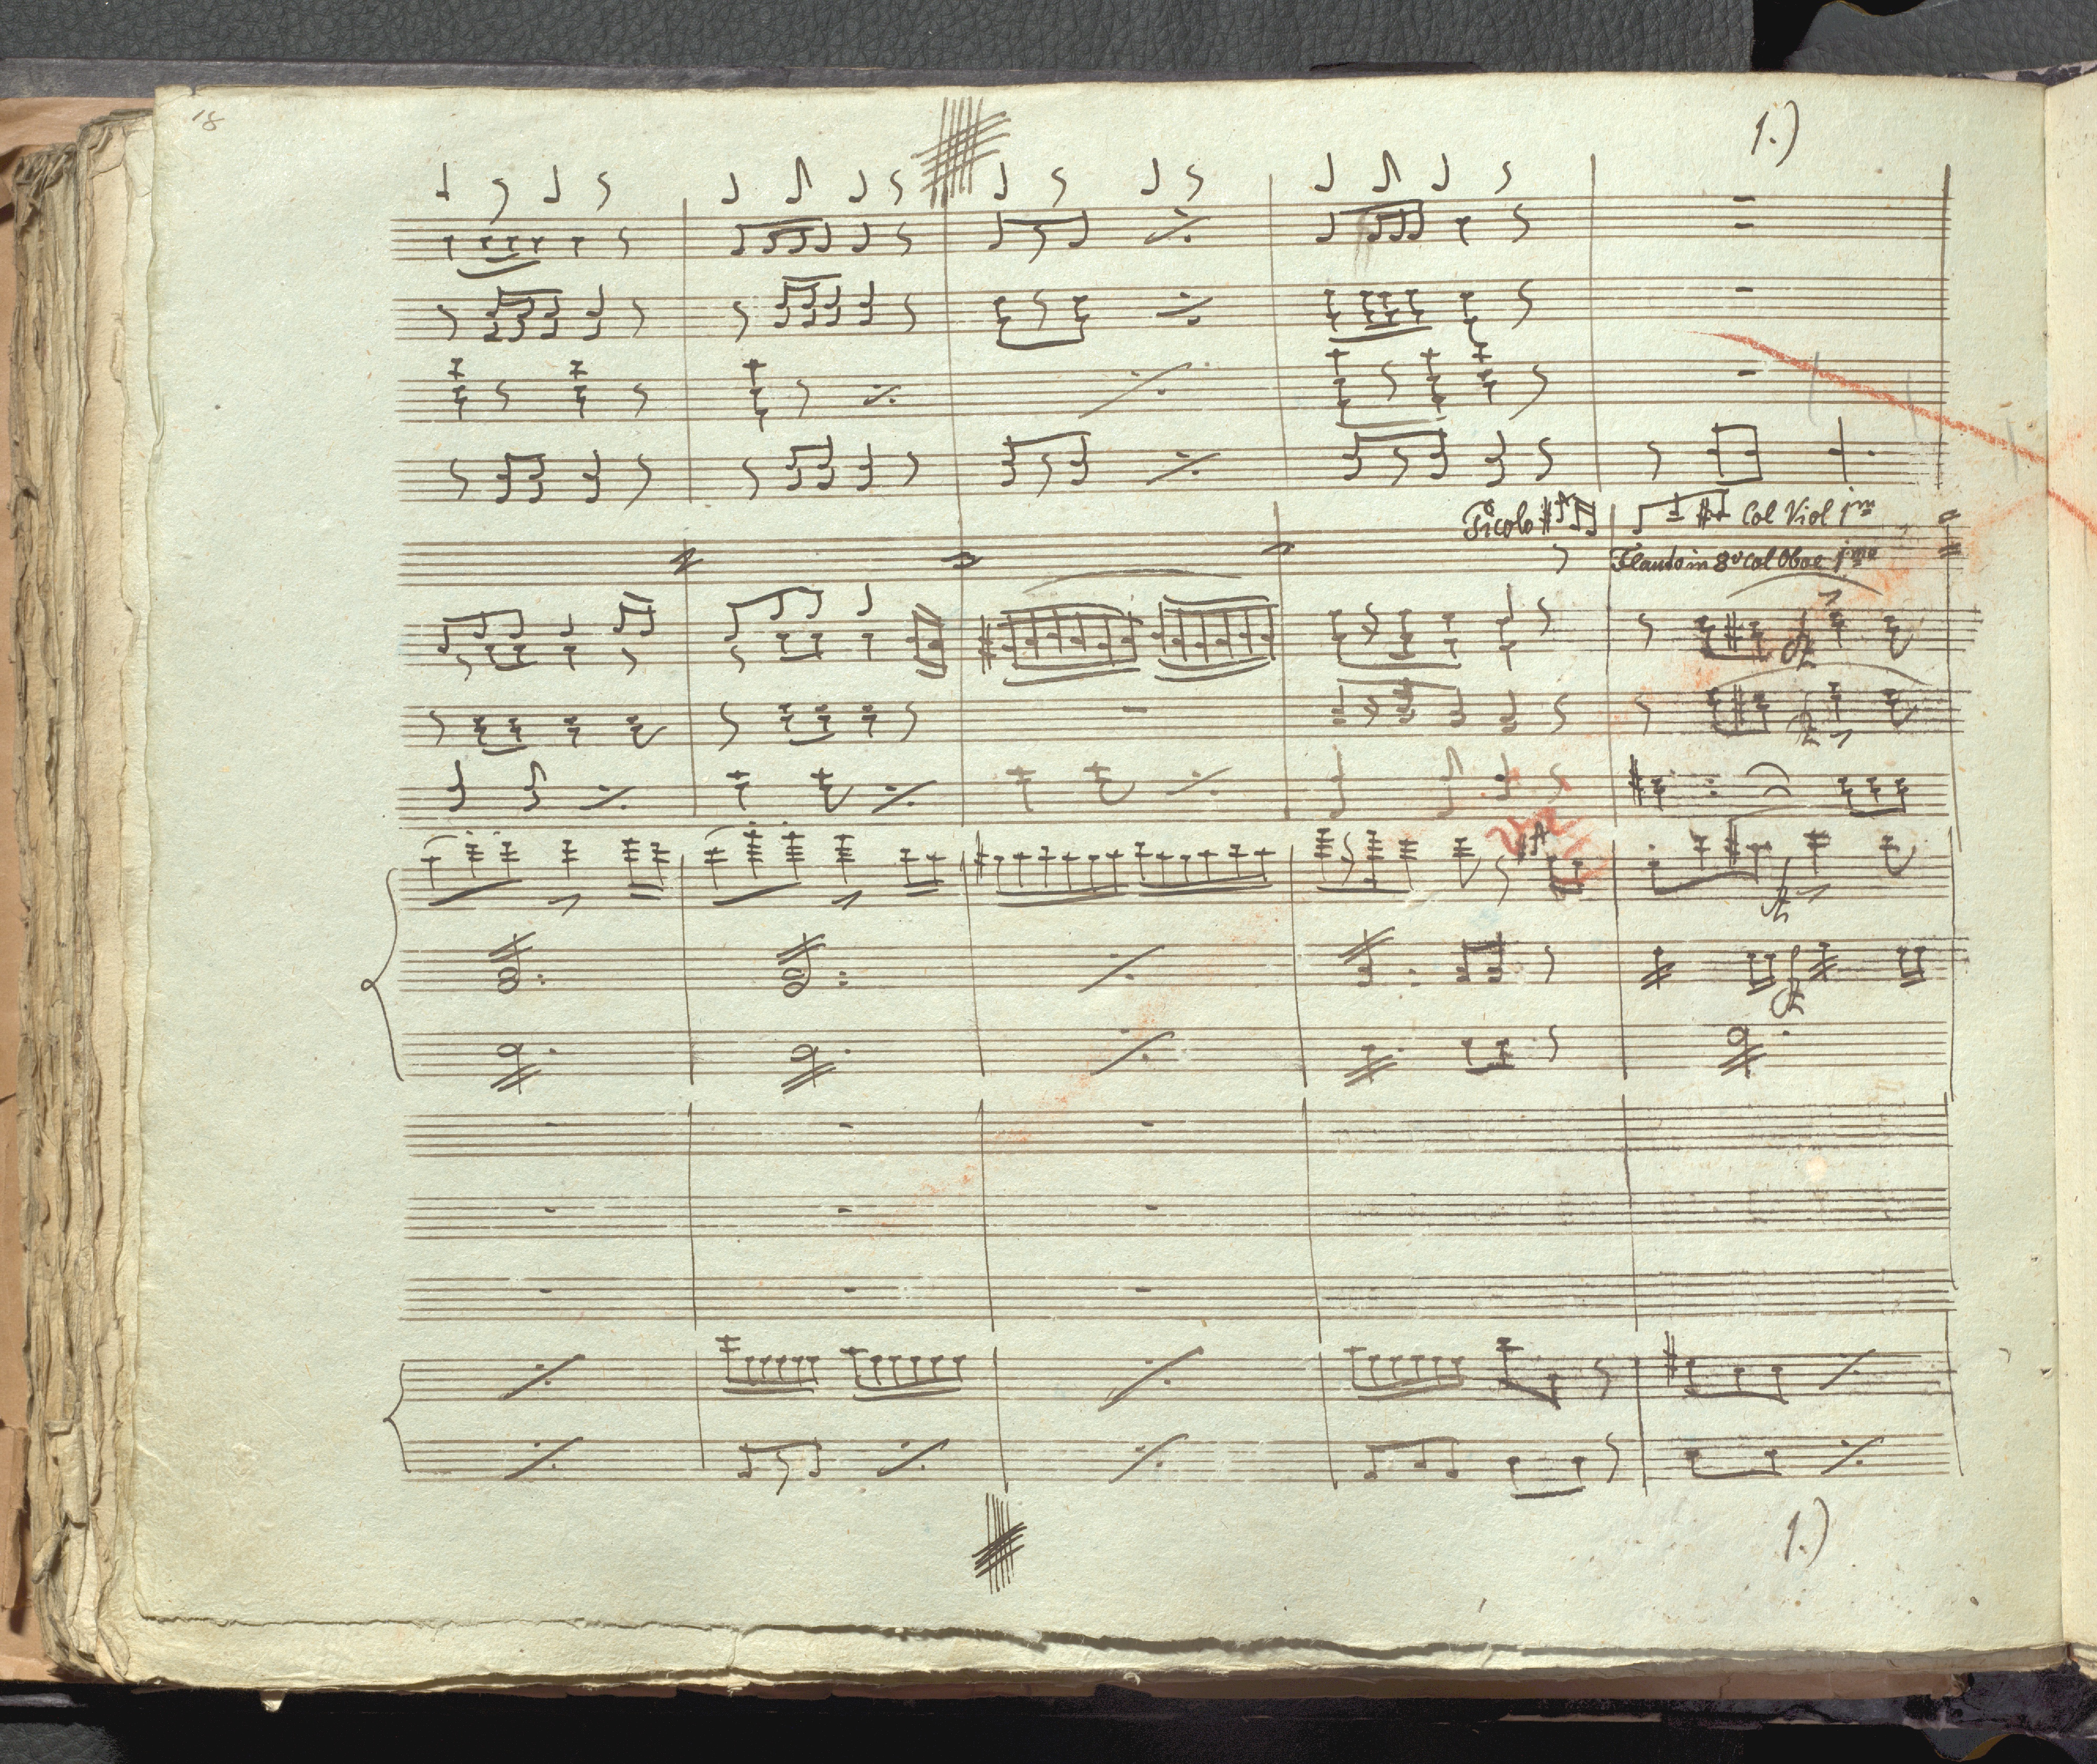 18
1.)
Picolo
Col Viol 1mo
Flauto in 8va Col Oboe 1mo
1.)